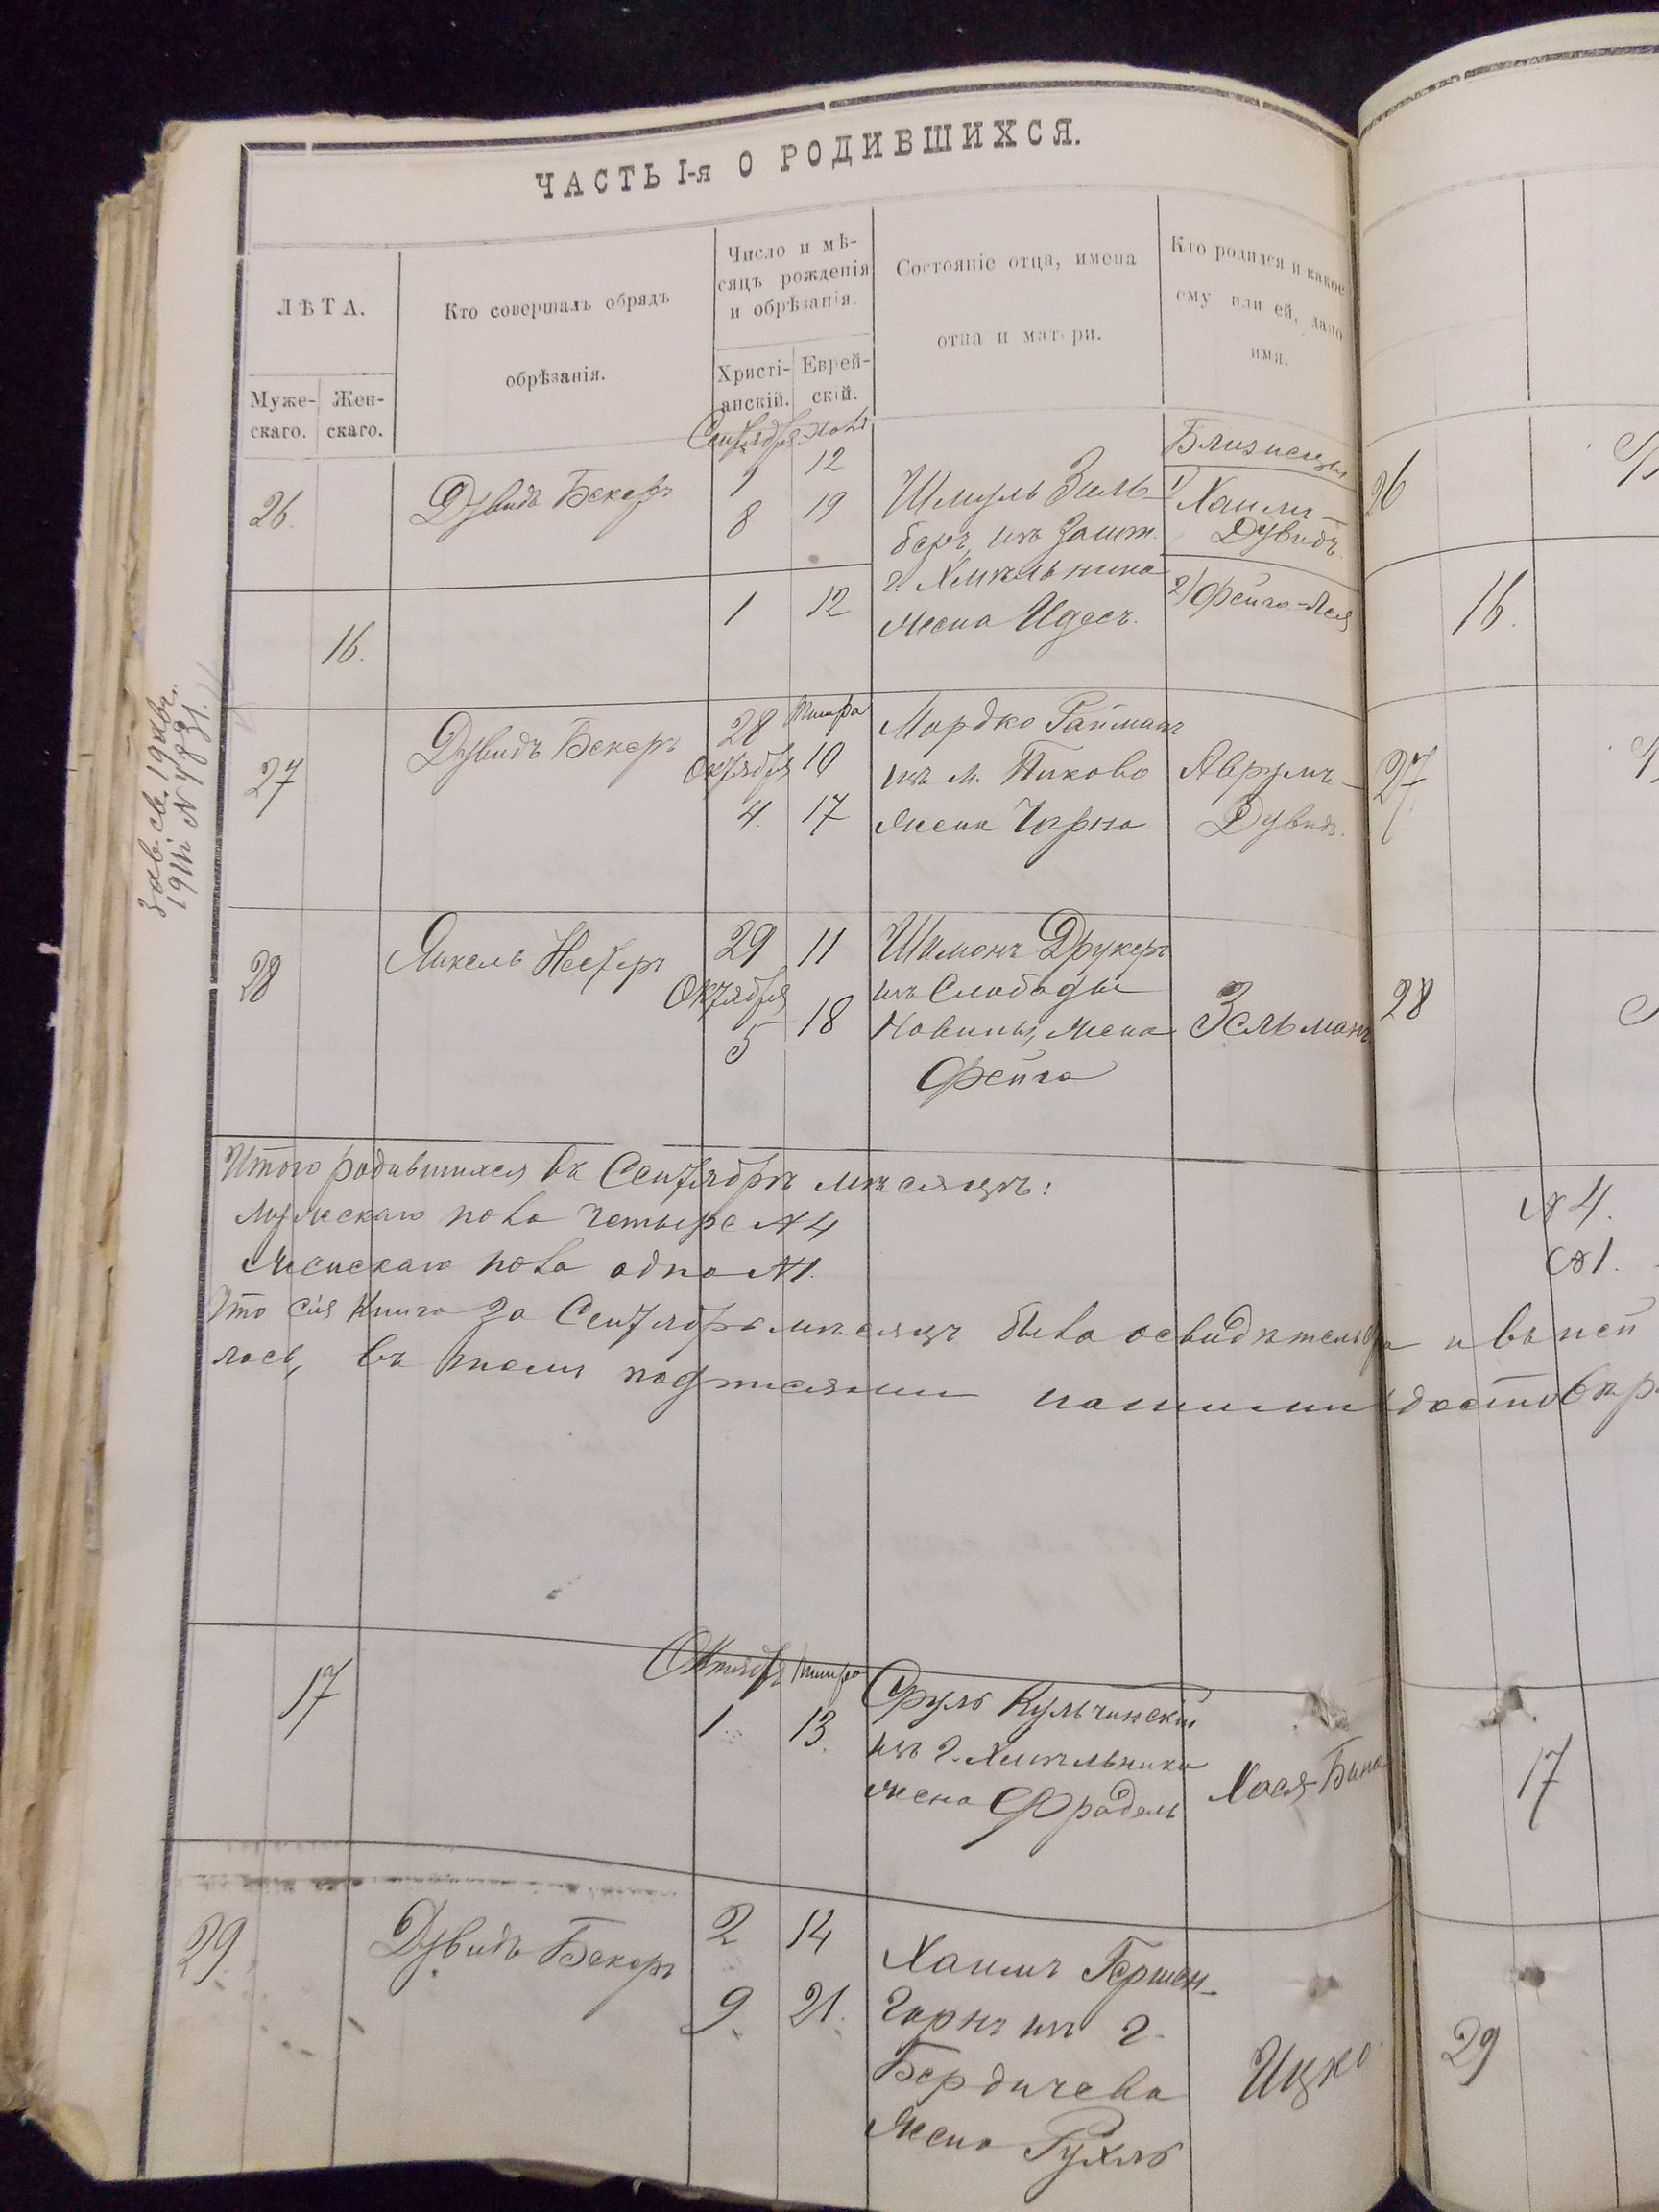 ЧАСТЬ I-я О РОДИВШИХСЯ.
ЛѢТА.
Муже-
скаго.
Жен-
скаго.
Кто совершалъ обрядъ
обрѣзанія.
Число и мѣ-
сяцъ рожденія
и обрѣзанія.
Христі-
анскій.
Еврей-
скій.
Состояніе отца, имена
отца и матери.
Кто родился и какое
ему или ей, дано
имя.
Сентября
26.
Дувидъ Бекеръ
1 12
8 19
Шмуль Зиль-
беръ, изъ
г. Хмѣльника
жена Идесъ.
Близнецы
1) Хаимъ-
Дувидъ.
26
16.
1 12
2) Фейга-Лея
16.
27
Дувидъ Бекеръ
28 Тишра
Октября 10
4. 17
Мордко Райманъ
изъ м. Пиково
жена Чарна
Аврумъ-
Дувидъ.
27
28
Янкель Нестеръ
29 11
Октября
5 18
Шимонъ Друкеръ
изъ Слободы
Новины, жена
Фейга
Зельманъ
28
Итого родившихся въ Сентябрѣ мѣсяцѣ:
мужскаго пола четыре №4
№ 4.
женскаго пола одна №1.
№1.
Что сія книга за Сентябрь мѣсяцъ была освидѣтельс и въ ней
лось, въ томъ подписями нашими достовѣр
17
Октября Тишра
1 13.
Сруль Кульчинскій
изъ г. Хмѣльника
жена Фрадель
Хася-Бина
17
29.
Дувидъ Бекеръ
2 14
9 21.
Хаимъ Гершен-
горнъ изъ г.
Бердичева
жена Рухль
Ицко
29